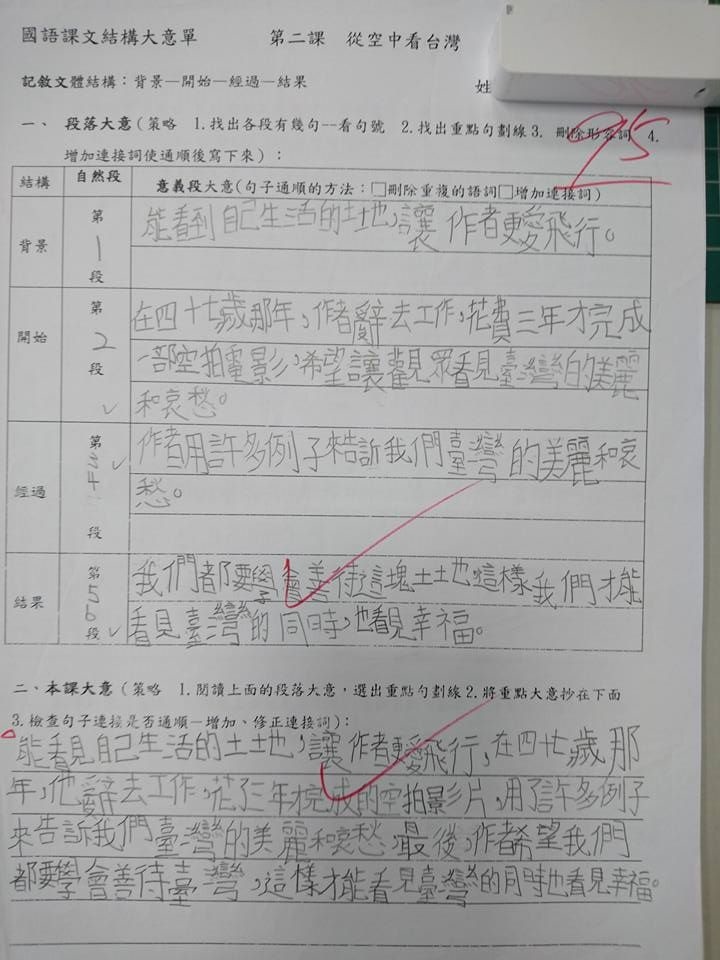 國語課文結構大意單 第二課 從空中看台灣
記敘文體結構：背景—開始—經過—結果 姓
一、 段落大意（策略 1.找出各段有幾句--看句號 2.找出重點句劃線3. 刪除形容詞 4.
增加連接詞使通順後寫下來）：
95
結構 自然段 意義段大意(句子通順的方法：□刪除重複的語詞□增加連接詞)
背景 第1段 能看到自己生活的土地，讓作者更愛飛行。
開始 第2段 在四十七歲那年，作者辭去工作，花費三年才完成
一部空拍電影，希望讓觀眾看見臺灣的美麗
和哀愁。
經過 第34段 作者用許多例子來告訴我們臺灣的美麗和哀
愁。
結果 第56段 我們都要學會善待這塊土地，這樣我們才能
看見臺灣的同時，也看見幸福。
二、本課大意（策略 1.閱讀上面的段落大意，選出重點句劃線2.將重點大意抄在下面
3.檢查句子連接是否通順－增加、修正連接詞）：
能看見自己生活的土地，讓作者更愛飛行，在四十七歲那
年，他辭去工作，花了三年才完成的空拍影片，用了許多例子
來告訴我們臺灣的美麗和哀愁。最後，作者希望我們
都要學會善待臺灣，這樣才能看見臺灣的同時也看見幸福。